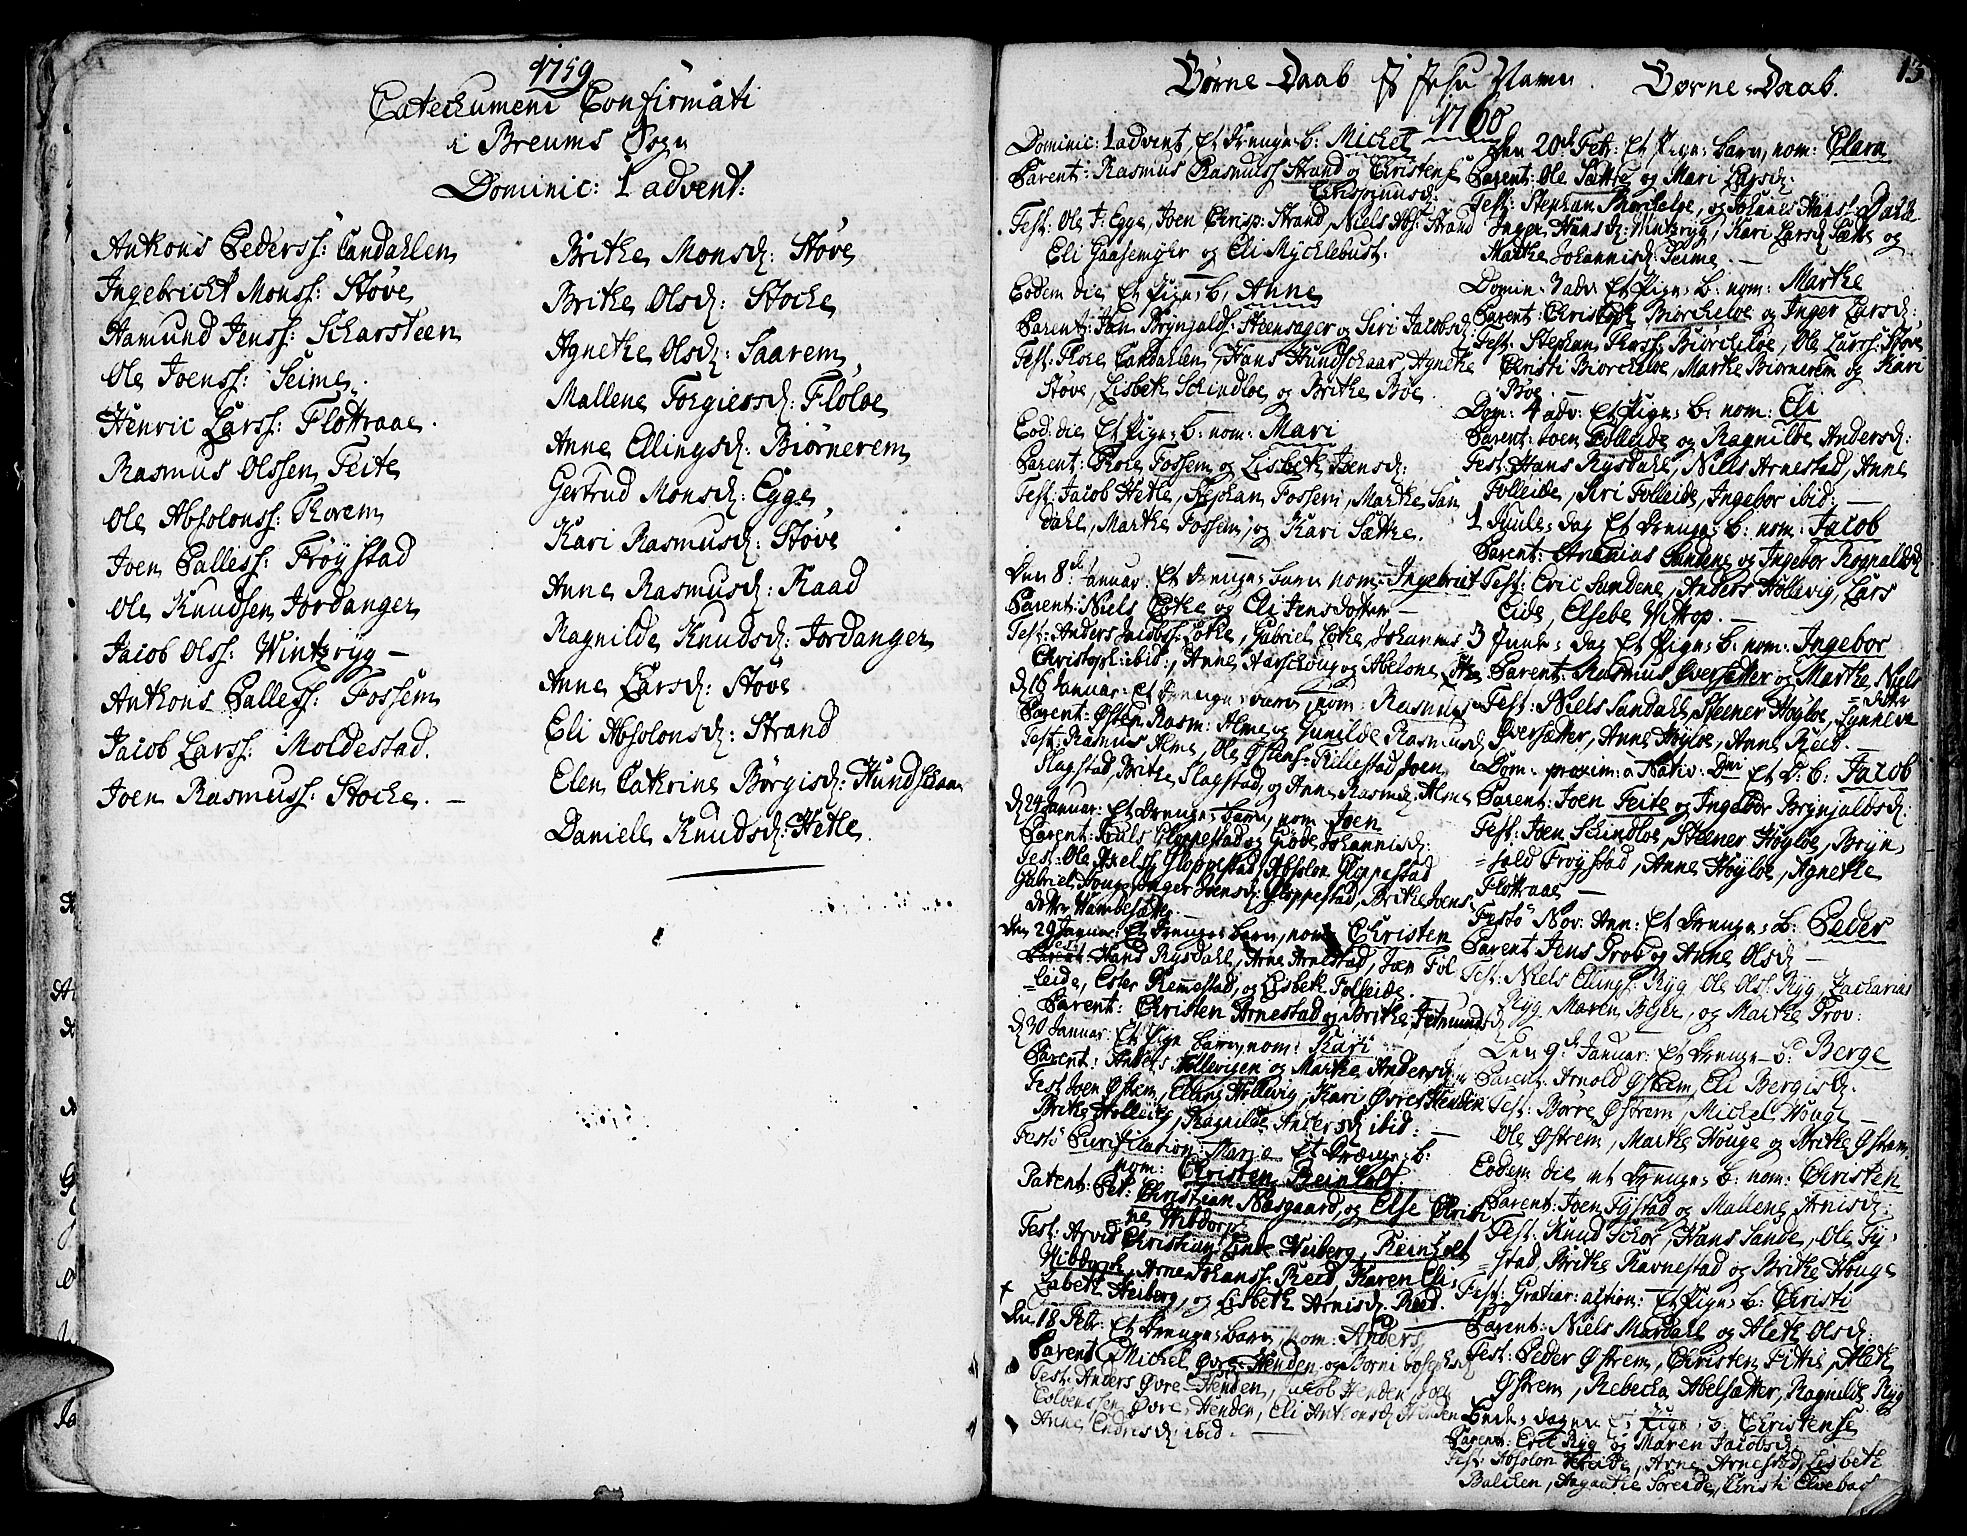 1759
Catechumeni Confirmati
i Breums Sogn
Dominic: 1 advent:
Anthons Pederss: Sandahlen
Ingebricht Monss: Støve
Hamund Jenss: Scharsteen
Ole Joenss: Seime
Henric Larss: Flottraae
Rasmus Olssen Feite
Ole Absolonss: Rorem
Joen Palless: Frøystad
Ole Knudsen Jordanger
Jacob Olss: Wintzryg –
Anthons Palless: Fossem
Jacob Larss: Moldestad.
Joen Rasmuss: Stoche. –
Brithe Monsd: Støve
Brithe Olsd: Stoche
Agnethe Olsd: Saarem
Mallene Torgiersd: Floloe
Anne Ellingsd: Biørnerem
Gertrud Monsd: Egge
Kari Rasmusd: Støve
Anne Rasmusd: Raad
Ragnilde Knudsd: Jordanger
Anne Larsd: Støve
Eli Absolonsd: Strand
Elen Cathrine Børgisd: Hundschaar
Daniele Knudsd: Hetle.
Børne-Daab J Jesu Navn. Børne-Daab. 13
1760
Dominic: 1 advent, Et drenge b: Michel
Parent: Rasmus Rasmuss Strand og Christense
Test: Ole J: Egge, Joen Chrisp: Strand, Niels Abs: Strand
Eli Gaasemyhr og Eli Mychlebust.
Eodem die Et Pige: b, Anne
Parent: Jan Brynjalds: Steensager og Siri Jacobsd:
Test: Thore Sandahlen, Hans Hundschaar, Agnethe
Støve, Lisbeth Schindloe og Brithe Bøe.
Eod: die Et Pige: b: nom: Mari
Parent: Thore Fossem og Lisbeth Joensd:
Test: Jacob Hetle, Stephan Fossem, Marthe San
dahl, Marthe Fossem, og Kari Sætthe.
Den 8de Januar Et drenge: barn nom: Ingebrict
Parent: Niels Lothe og Eli Jensdotter –
Test: Anders Jacobss: Lothe, Gabriel Lothe, Johannes
Christoph: ibid:, Anne Aarschoug og Abelone Lothe
d 16 Januar: Et drenge: barn, nom: Rasmus
Parent: Østen Rasm: Alme og Gunilde Rasmusd
Test: Rasmus Alme, Ole Østens: Rillestad, Joen
Flagstad, Brithe Flagstad, og Anne Rasmusd, Alme
d 24 Januar: Et drenge: barn, nom Joen
Parent: Pouls Gloppestad og Giøde Johannisd:
Test: Ole Axels: Gloppestad, Absolon Gloppestad
Gabriel Houge, Inger Joensd: Gloppestad, Brithe Joens
dotter Wambesætter. –
Den 29 Januar: Et drenge: barn, nom: Christen
Test: Hans Rysdahl, Arne Arnestad, Joen Fol
=leide, Ester Remmestad, og Lisbeth Folleide.
Parent: Christen Arnestad og Brithe
d 30 Januar: Et Pige barn, nom: Kari
Parent: Anders Hollevigen og Marthe Andersd:
Test Joen Østrem, Elling Hollevig, Kari Øvre Henden
Brithe Hollevig, Ragnilde Andersd ibid: –
Festo Purification: Mariæ Et Drenge: b:
nom: Christen Reinholt.
Parent: Pet: Christian Næsgaard, og Else Christi
ne Wibdorph
Test: Arvid Christian Linde Heiberg, Reinholt
Wibdorph, Arne Johanss: Reed, Karen Eli
zabeth Heiberg, og Lisbeth Arnisd: Reed.
Den 18 Febr: Et drenge: barn, nom: Anders
Parent: Michel Øvre-Henden, og Borni Josephsd
Test: Anders Øvre-Henden, Jacob Henden, Joen
Colbenssen Øvre-Henden, Eli Anthonsd, Henden
Anne Endrisd: ibid. –
Den 20de Febr: Et Pige: barn, nom: Clara
Parent: Ole Sættre og Mari Larsd:
Test: Stephan Biørcheloe, og Johanes Hans:
Inger Hansd: Wintzryg, Kari Larsd Sætre og
Marthe Johannisd: Seime. –
Domin: 3 adv: Et Pige: b: nom: Marthe
Parent: Christoph Biørcheloe og Inger Larsd:
Test: Stephan Biørcheloe, Ole Larss: Støve
Christi Biørcheloe, Marthe Biørnerem og Kari
Bøe. –
Dom: 4 adv: Et Pige: b: nom: Eli
Parent: Joen Folleide og Ragnilde Andersd:
Test: Hans Rysdahl, Niels Arnestad, Anne
Folleide, Siri Folleide, Ingebor ibid: –
1 Juule: dag Et drenge: b: nom: Jacob
Parent: Ananias Sandene og Ingebor Rognaldsd
Test: Eric Sandene, Anders Hollevig, Lars
Eide, Elsebe Wittrop. –
3 Juule: dag Et Pige: b: nom: Ingebor
Parent: Rasmus Øversætter og Marthe Niels
=dotter
Test: Niels Sandahl, Steener Høyloe, Synneve
Øversætter, Anne Høyloe, Anne Reed. –
Dom: proxim: a Nativ: Dni Et D: b: Jacob
Parent: Joen Feite og Ingebor Brynjaldsd:
Test: Joen Schindloe, Steener Høyloe, Bryn=
=jold Frøystad, Anne Høyloe, Agnethe
Flottraae –
Festo Nov: Ann: Et drenge: b: Peder
Parent Jens Prov og Anne Olsd –
Test: Niels Ellings: Ryg, Ole Olss: Ryg, Zacharias
Ryg, Maren Bejer, og Marthe Prov:
Den 9de Januar: Et drenge: b: Berge
Parent: Arnold Østrem, Eli Bergisd:
Test: Børre Østrem, Michel Houge –
Ole Østrem, Marthe Houge og Brithe Østrem
Eodem die et drenge: b: nom: Christen
Parent: Joen Fystad og Mallene Arnisd:
Test: Knud Schor, Hans Sande, Ole Fy=
=stad, Brithe Ravnestad og Brithe Houge
Fest: Gratiar: action: Et Pige: b: Christi
Parent: Niels Mardahl og Aleth Olsd:
Test: Peder Østrem, Christen Fitie, Aleth
Østrem, Rebecka Abelsætter, Ragnilde Ryg
Bede: dagen Et Pige: b: Christense
Parent: Eric Ryg og Maren Jacobsd:
Test: Absolon, Arne Arnestad, Lisbeth
Balchen, Aagaathe Soreide, Christi